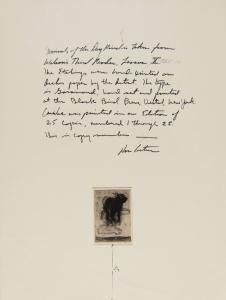 Animals of the Day Mind is taken from
Watson's Third Reader, Lesson II.
The Etchings were hand printed on
Arches paper by the Artist. The type
is Garamond, hand set and printed
at the Black Bird Press, United, New York
was printed in an Edition of
25 Copies, numbered 1 through 25.
This is copy number